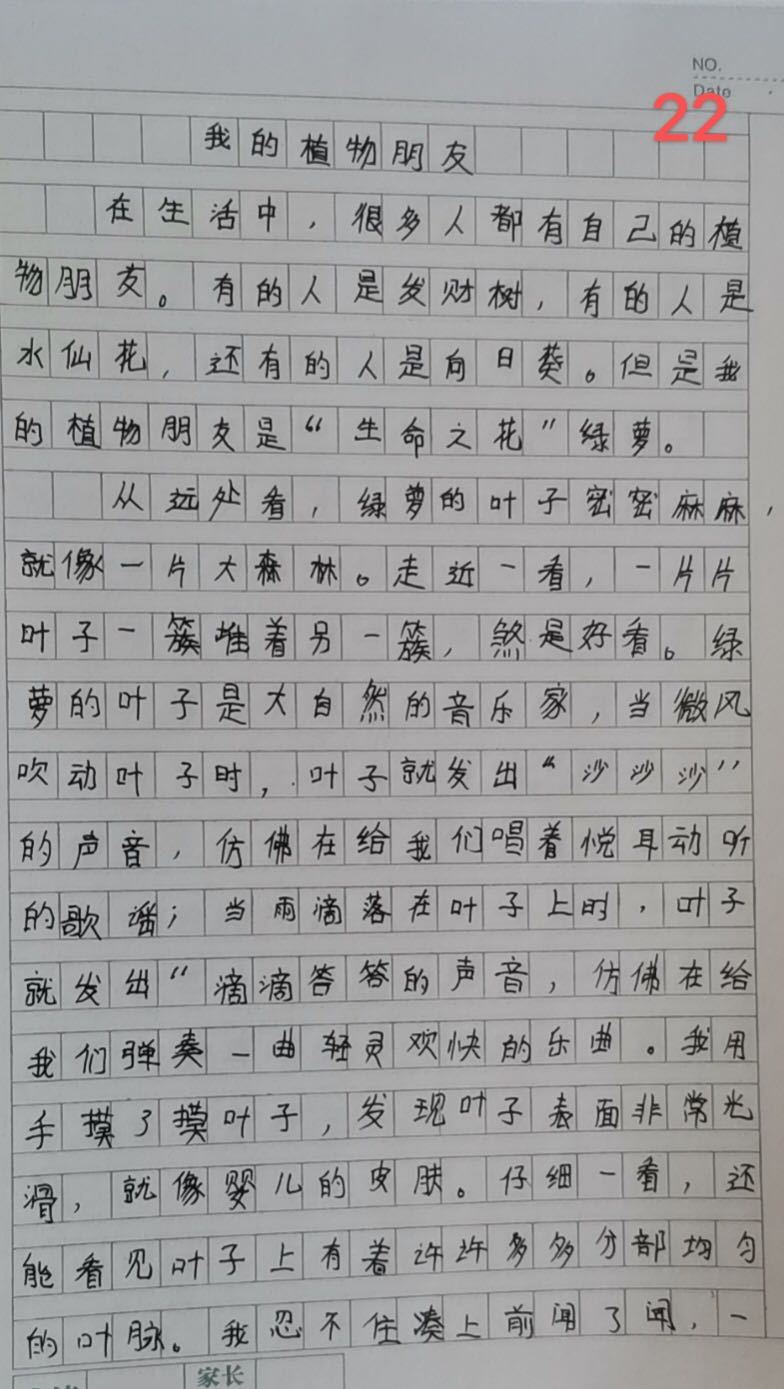 NO.
Date
22
我的植物朋友
在生活中，很多人都有自己的植
物朋友。有的人是发财树，有的人是
水仙花，还有的人是向日葵。但是我
的植物朋友是“生命之花”绿萝。
从远处看，绿萝的叶子密密麻麻，
就像一片大森林。走近一看，一片片
叶子一簇堆着另一簇，煞是好看。绿
萝的叶子是大自然的音乐家，当微风
吹动叶子时，叶子就发出“沙沙沙”
的声音，仿佛在给我们唱着悦耳动听
的歌谣；当雨滴落在叶子上时，叶子
就发出“滴滴答答的声音，仿佛在给
我们弹奏一曲轻灵欢快的乐曲。我用
手摸了摸叶子，发现叶子表面非常光
滑，就像婴儿的皮肤。仔细一看，还
能看见叶子上有着许许多多分部均匀
的叶脉。我忍不住凑上前闻了闻，一
家长